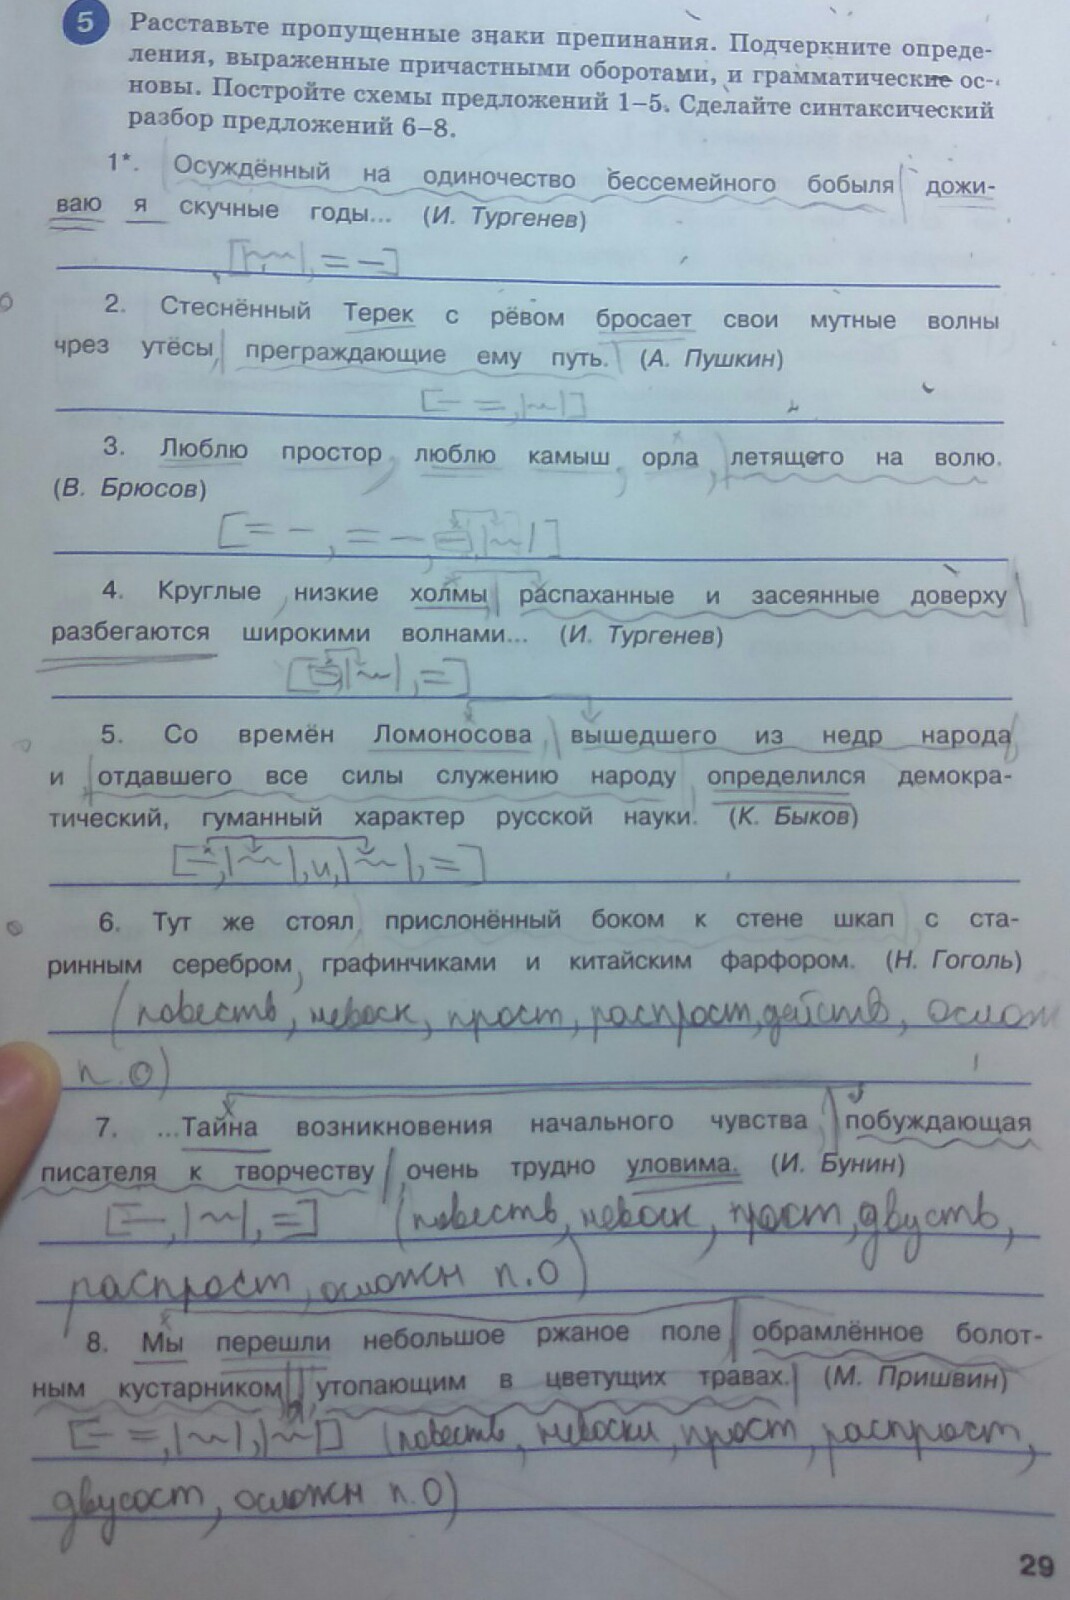 5 Расставьте пропущенные знаки препинания. Подчеркните опреде-
ления, выраженные причастными оборотами, и грамматические ос-
новы. Постройте схемы предложений 1–5. Сделайте синтаксический
разбор предложений 6–8.
1*. Осуждённый на одиночество бессемейного бобыля дожи-
ваю я скучные годы... (И. Тургенев)
2. Стеснённый Терек с рёвом бросает свои мутные волны
чрез утёсы, преграждающие ему путь. (А. Пушкин)
3. Люблю простор, люблю камыш, орла, летящего на волю.
(В. Брюсов)
4. Круглые, низкие холмы, распаханные и засеянные доверху,
разбегаются широкими волнами... (И. Тургенев)
5. Со времён Ломоносова, вышедшего из недр народа
и отдавшего все силы служению народу, определился демокра-
тический, гуманный характер русской науки. (К. Быков)
и
6. Тут же стоял прислонённый боком к стене шкап с ста-
ринным серебром, графинчиками и китайским фарфором. (Н. Гоголь)
(повеств, невоск, прост, распрост, действ, ослож
п.о)
7. ...Тайна возникновения начального чувства, побуждающая
писателя к творчеству, очень трудно уловима. (И. Бунин)
(повеств, невоск, прост, двуств,
распрост, осложн п.о)
8. Мы перешли небольшое ржаное поле, обрамлённое болот-
ным кустарником, утопающим в цветущих травах. (М. Пришвин)
(повеств, невоскл, прост, распрост,
двусост, осложн п.о)
29